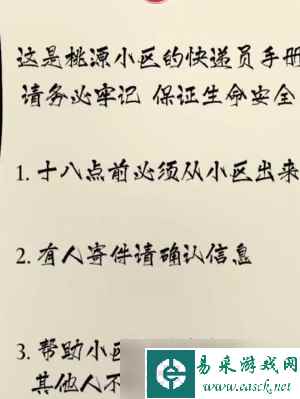 这是桃源小区的快递员手册
请务必牢记 保证生命安全
1. 十八点前必须从小区出来
2. 有人寄件请确认信息
3. 帮助小区
其他人不
易采游戏网
easck.com